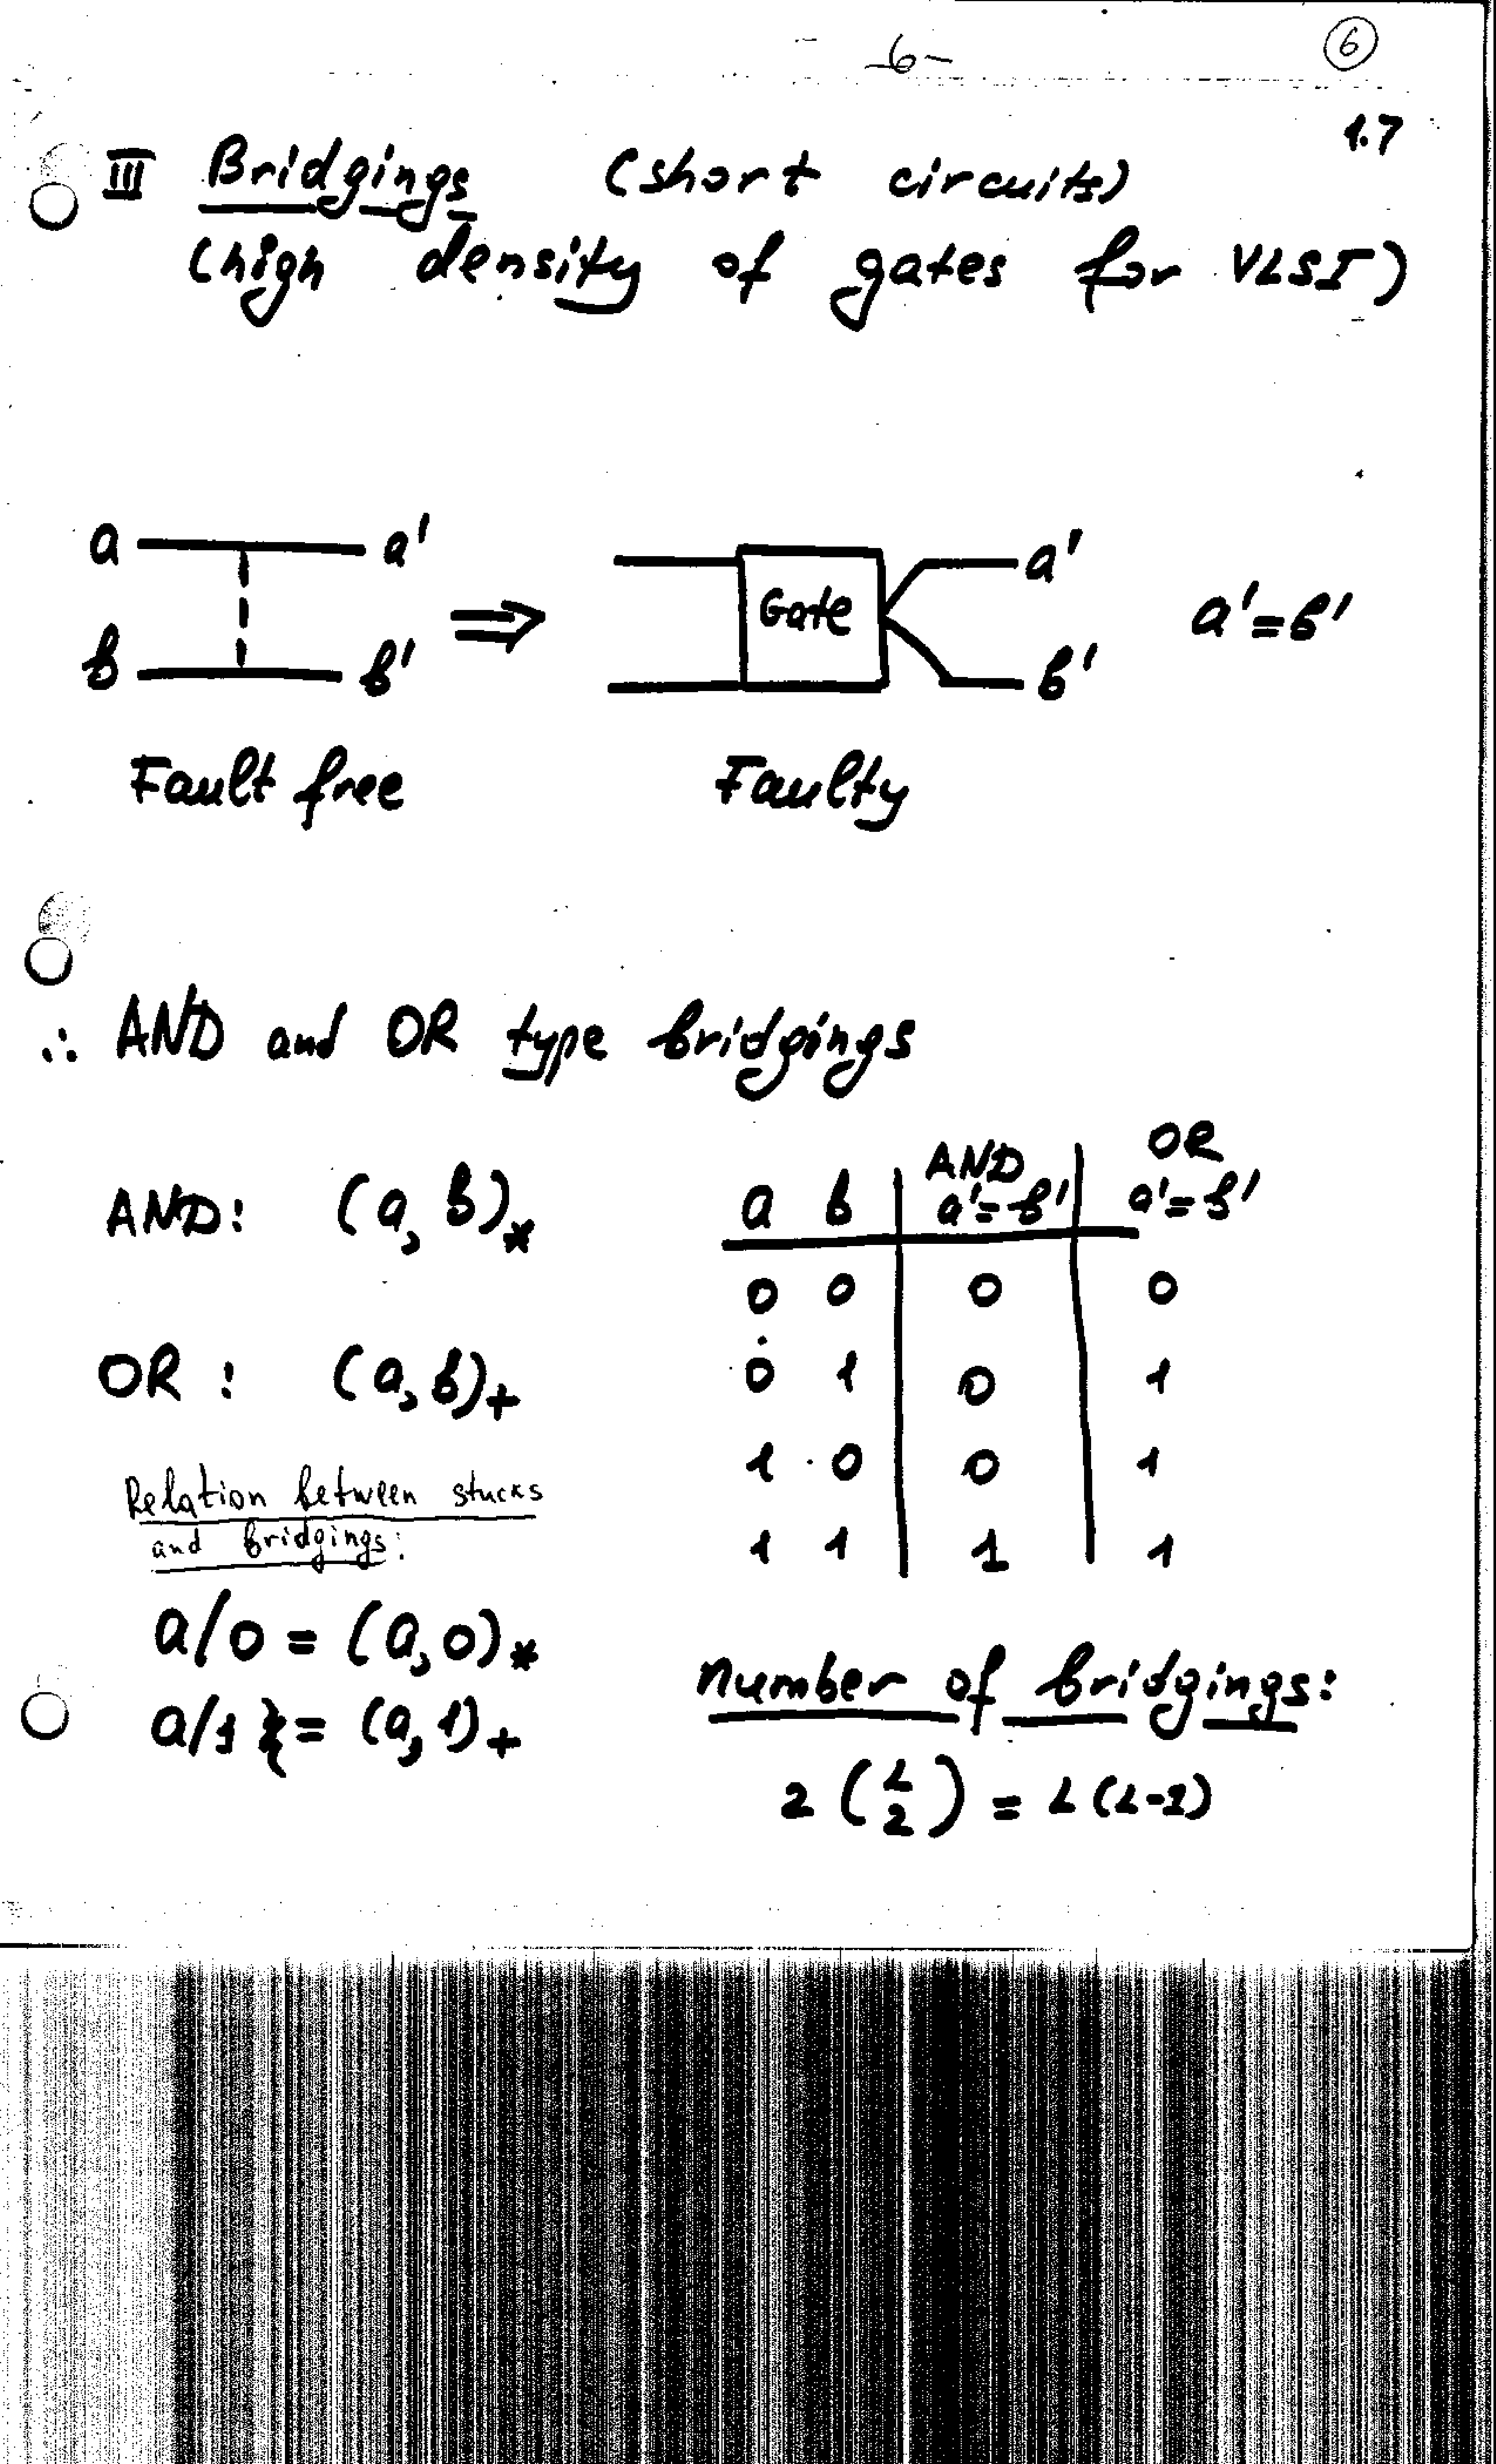 -6-
6
1.7
III Bridgings (short circuits)
(high density of gates for VLSI)
a a'
b b'
⇒
Gate
a'
b'
a'=b'
Fault free
Faulty
∴ AND and OR type bridgings
AND: (a, b)*
OR : (a, b)+
a b AND a'=b' OR a'=b'
0 0 0 0
0 1 0 1
1 0 0 1
1 1 1 1
Relation between stucks
and bridgings:
a/0 = (a, 0)*
a/1 = (a, 1)+
Number of bridgings:
2 (L 2) = L (L-1)